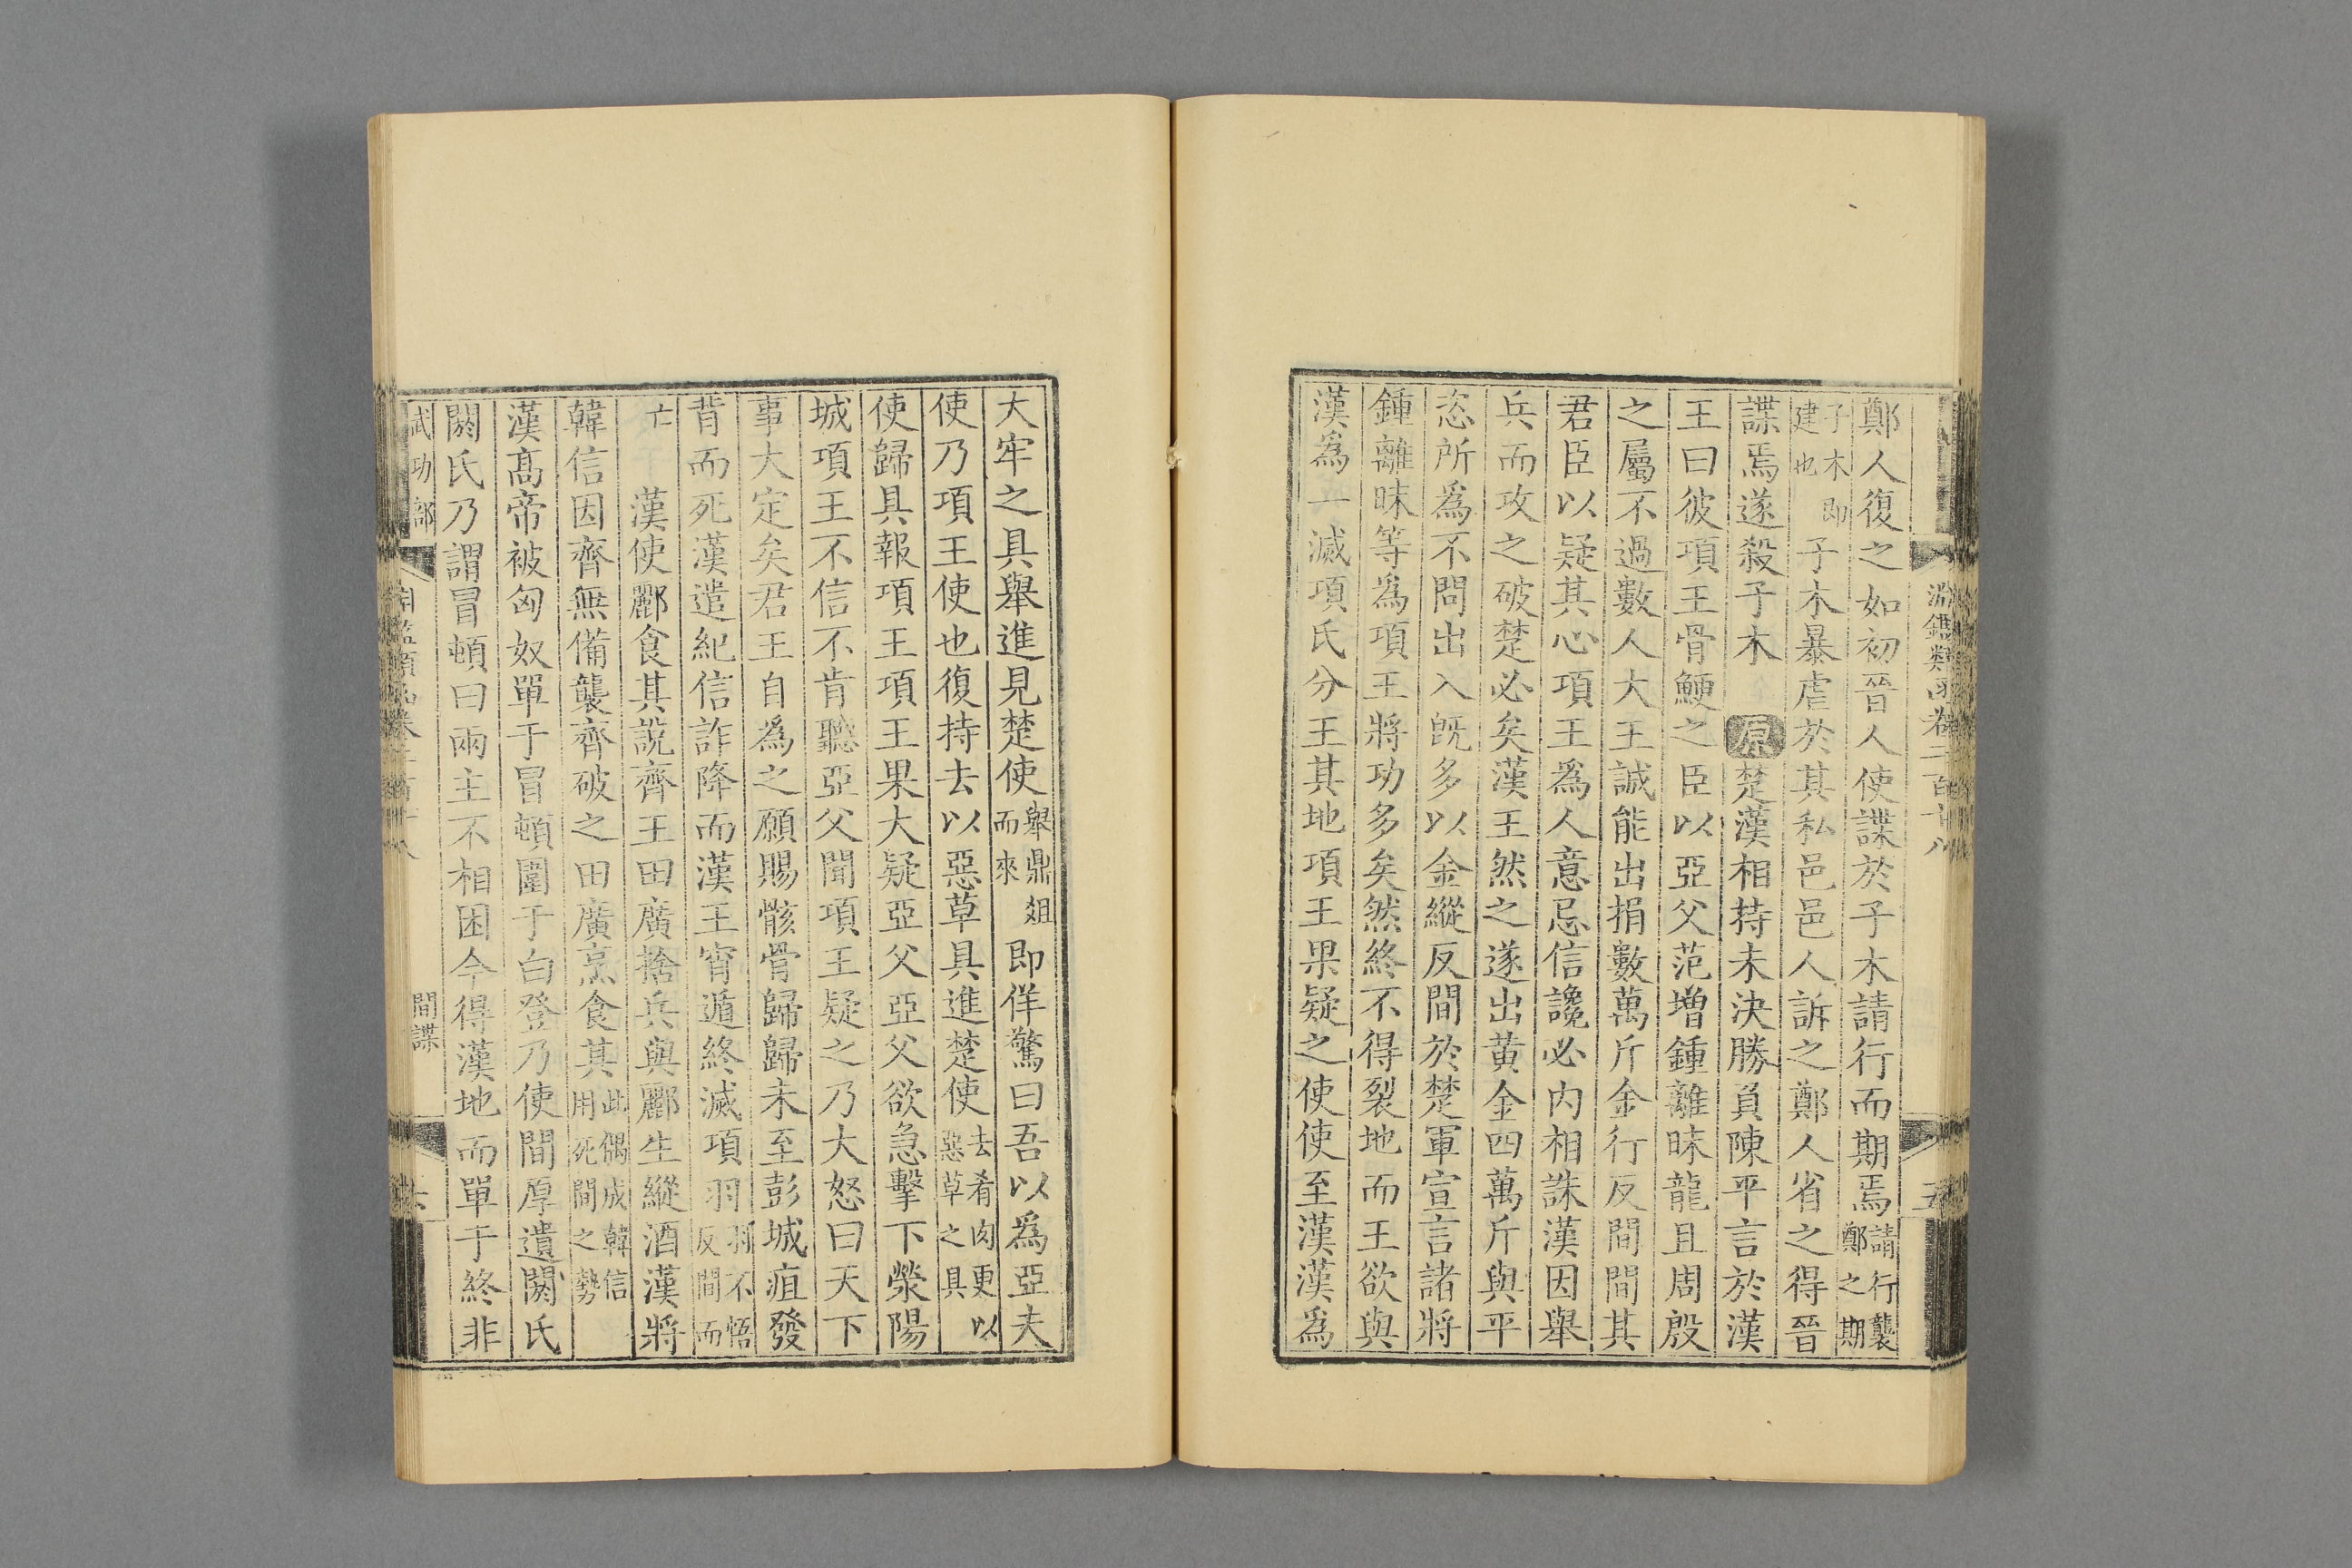 淵鑑類函卷二百十八
五
鄭人復之如初晉人使諜於子木請行而期焉請行襲鄭之期
子木即建也子木暴虐於其私邑邑人訴之鄭人省之得晉
諜焉遂殺子木 原楚漢相持未決勝負陳平言於漢
王曰彼項王骨鯁之臣以亞父范增鍾離昧龍且周殷
之屬不過數人大王誠能出捐數萬斤金行反間間其
君臣以疑其心項王為人意忌信讒必內相誅漢因舉
兵而攻之破楚必矣漢王然之遂出黃金四萬斤與平
恣所為不問出入旣多以金縱反間於楚軍宣言諸將
鍾離昧等為項王將功多矣然終不得裂地而王欲與
漢為一滅項氏分王其地項王果疑之使使至漢漢為
大牢之具舉進見楚使舉鼎俎而來即佯驚曰吾以為亞夫
使乃項王使也復持去以惡草具進楚使去肴肉更以惡草之具
使歸具報項王項王果大疑亞父亞父欲急擊下滎陽
城項王不信不肯聽亞父聞項王疑之乃大怒曰天下
事大定矣君王自為之願賜骸骨歸歸未至彭城疽發
背而死漢遣紀信詐降而漢王宵遁終滅項羽羽不悟反間而
亡 漢使酈食其說齊王田廣捨兵與酈生縱酒漢將
韓信因齊無備襲齊破之田廣烹食其此偶成韓信用死間之勢
漢高帝被匈奴單于冒頓圍于白登乃使間厚遺閼氏
閼氏乃謂冒頓曰兩主不相困今得漢地而單于終非
武功部
間諜